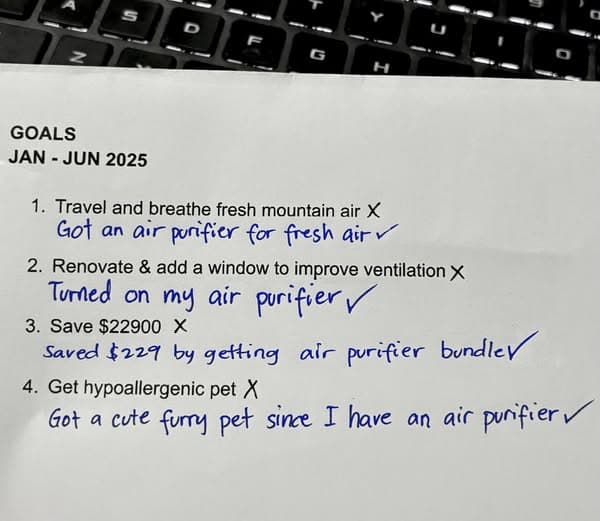 A S D F T Y U I O
Z G H
GOALS
JAN - JUN 2025
1. Travel and breathe fresh mountain air X
Got an air purifier for fresh air ✓
2. Renovate & add a window to improve ventilation X
Turned on my air purifier ✓
3. Save $22900 X
Saved $229 by getting air purifier bundle ✓
4. Get hypoallergenic pet X
Got a cute furry pet since I have an air purifier ✓